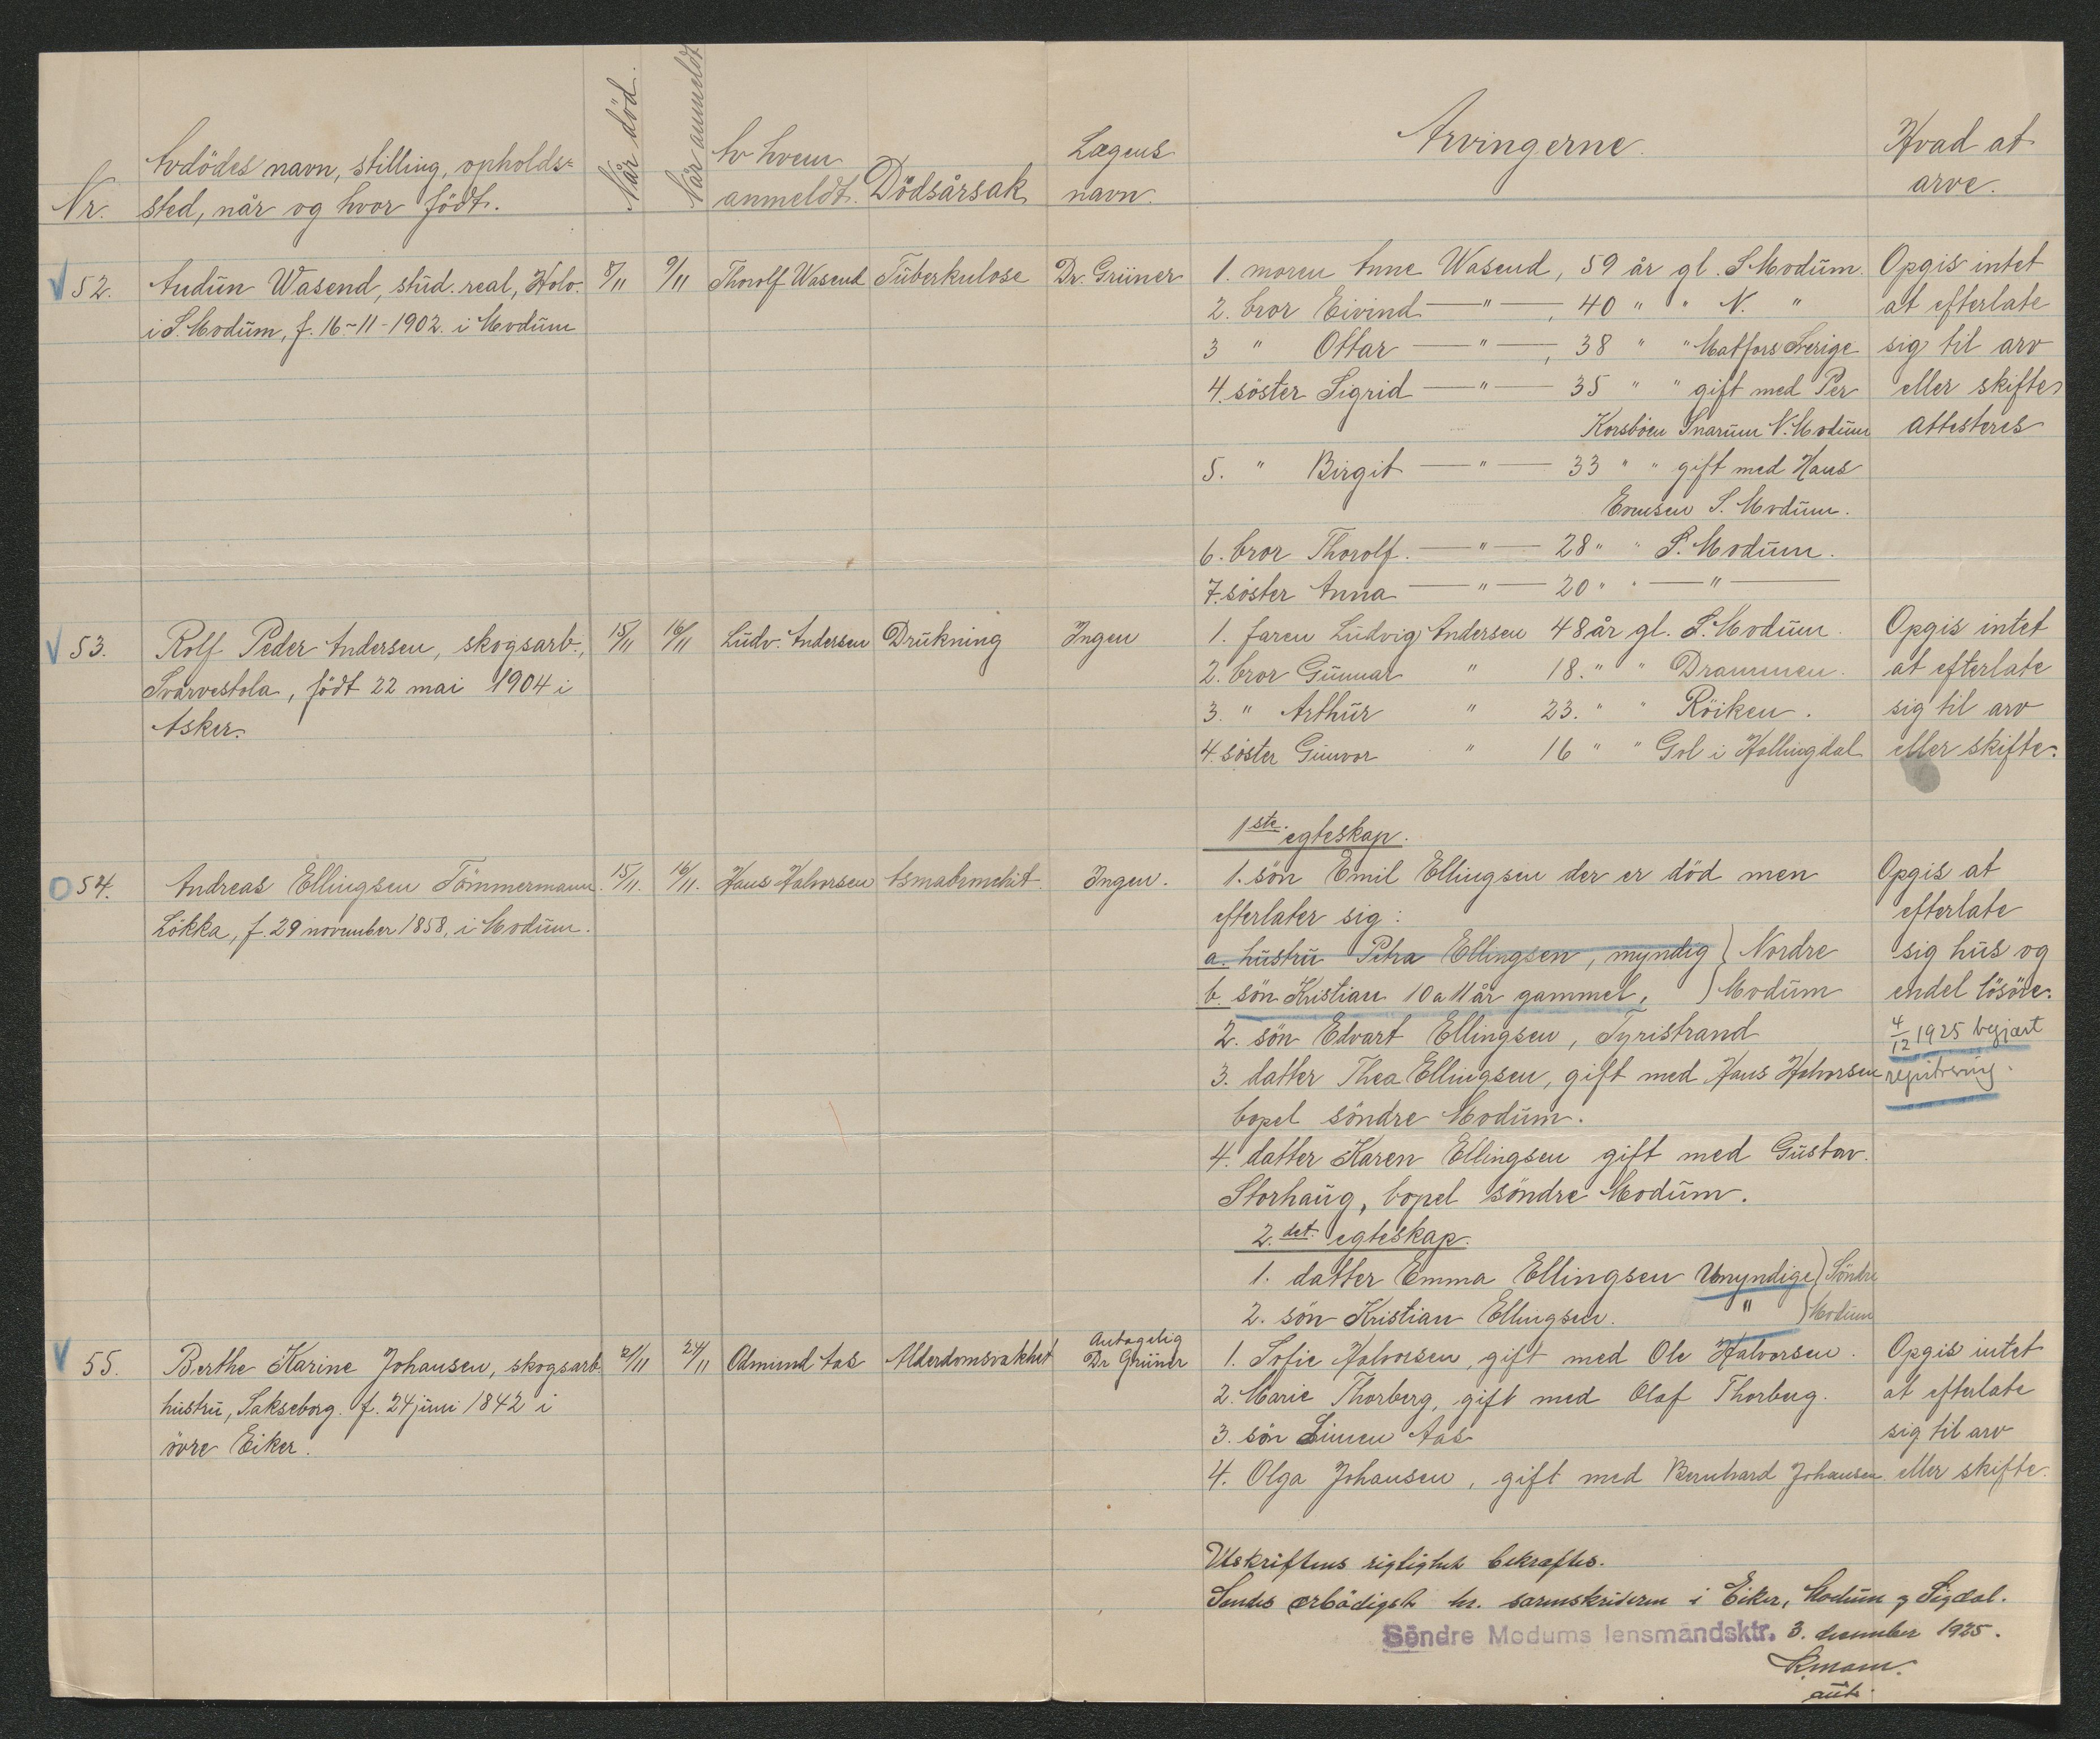 Nr.
Avdödes navn, stilling, opholds=
sted, når og hvor födt.
Når död.
Når anmeldt
Av hvem
anmeldt.
Dödsårsak
Lægens
navn.
Arvingerne.
Hvad at
arve.
52. Audun Wasend, stud. real, Holv. 8/11 9/11 Thorolf Wasend Tuberkulose Dr. Grüner
i S. Modum, f. 16-11-1902. i Modum
1. moren Anne Wasend, 59 år gl. S. Modum.
2. bror Eivind — " —, 40 " " N. "
3 " Ottar — " —, 38 " " Matfors Sverige
4. söster Sigrid — " — 35 " " gift med Per
Korsböen Snarum N. Modum
5. " Birgit — " — 33 " " gift med Hans
Evensen S. Modum.
6. bror Thorolf. — " — 28 " " S. Modum.
7. söster Anna — " — 20 " " — " —
Opgis intet
at efterlate
sig til arv
eller skifte
attesteres
53. Rolf Peder Andersen, skogsarb., 15/11 16/11 Ludv. Andersen Drukning Ingen
Svarvestola, födt 22 mai 1904 i
Asker.
1. faren Ludvig Andersen 48 år gl. S. Modum.
2. bror Gunnar " 18. " " Drammen.
3. " Arthur " 23. " " Röiken.
4. söster Gunvor " 16 " " Gol i Hallingdal
Opgis intet
at efterlate
sig til arv
eller skifte.
54. Andreas Ellingsen Tömmermann. 15/11. 16/11. Hans Halvorsen Ingen.
Lökka, f. 29 november 1858, i Modum.
1ste egteskap.
1. sön Emil Ellingsen der er död men
efterlater sig:
a. hustru Petra Ellingsen, myndig } Nordre
b. sön Kristian 10 a 11 år gammel, } Modum
2. sön Edvart Ellingsen, Tyristrand
3. datter Thea Ellingsen, gift med Hans Halvorsen
bopel söndre Modum.
4. datter Karen Ellingsen gift med Gustav.
Storhaug, bopel söndre Modum.
2. det. egteskap.
1. datter Emma Ellingsen Umyndige } Söndre
2. sön Kristian Ellingsen. " } Modum
Opgis at
efterlate
sig hus og
endel lösöre.
4/12 1925 begjært
registrering.
55. Berthe Karine Johansen, skogsarb. 21/11 24/11 Odmund Aas Alderdomsvakhet Antagelig
Dr Grüner
hustru, Sakseborg. f. 24 juni 1842 i
övre Eiker.
1. Sofie Halvorsen, gift med Ole Halvorsen.
2. Marie Thorberg, gift med Olaf Thorberg.
3. sön Simen Aas
4. Olga Johansen, gift med Bernhard Johansen
Opgis intet
at efterlate
sig til arv
eller skifte.
Utskriftens rigtighet bekræftes.
Sendes ærbödigst hr. sorenskriveren i Eiker, Modum og Sigdal.
Söndre Modums lensmandsktr. 3. december 1925.